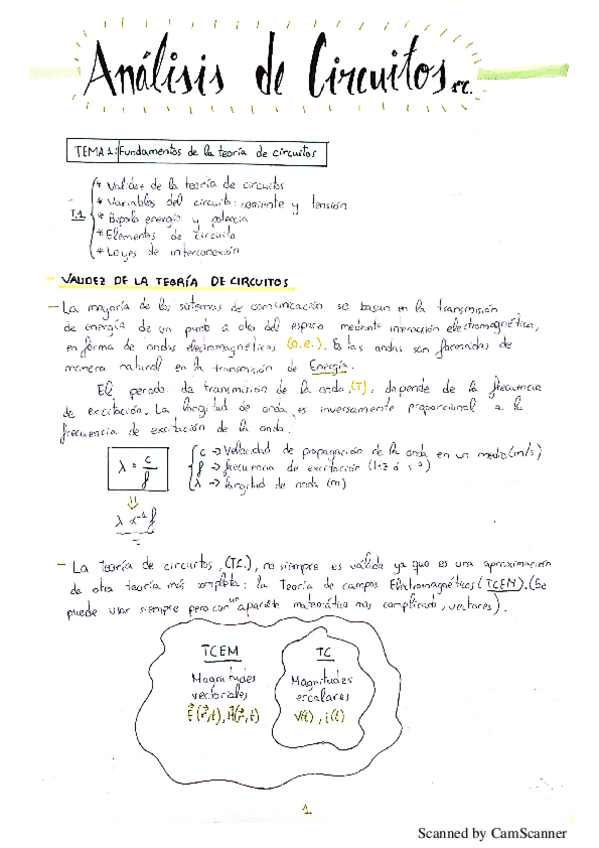 Análisis de Circuitos
TEMA 1: Fundamentos de la teoría de circuitos
* Validez de la teoría de circuitos
* Variables del circuito: corriente y tensión
T.1 * Bipolo energía y potencia
* Elementos de circuito
* Leyes de interconexión
- VALIDEZ DE LA TEORÍA DE CIRCUITOS
- La mayoría de los sistemas de comunicación se basan en la transmisión
de energía de un punto a otro del espacio mediante interacción electromagnética,
en forma de ondas electromagnéticas (o.e.). Estas ondas son formadas de
manera natural en la transmisión de Energía.
El periodo de transmisión de la onda, (T), depende de la frecuencia
de excitación. La longitud de onda es inversamente proporcional a la
frecuencia de excitación de la onda.
λ = c/f
c → Velocidad de propagación de la onda en un medio (m/s)
f → frecuencia de excitación (Hz ó s⁻¹)
λ → longitud de onda (m)
⇓
λ α⁻¹ f
- La teoría de circuitos, (TC.), no siempre es válida ya que es una aproximación
de otra teoría más completa: la Teoría de campos Electromagnéticos (TCEM). (Se
puede usar siempre pero con un aparato matemático mas complicado, vectores).
TCEM
Magnitudes
vectoriales
E⃗(r⃗,t), H⃗(r⃗,t)
TC
Magnitudes
escalares
V(t), i(t)
1
Scanned by CamScanner